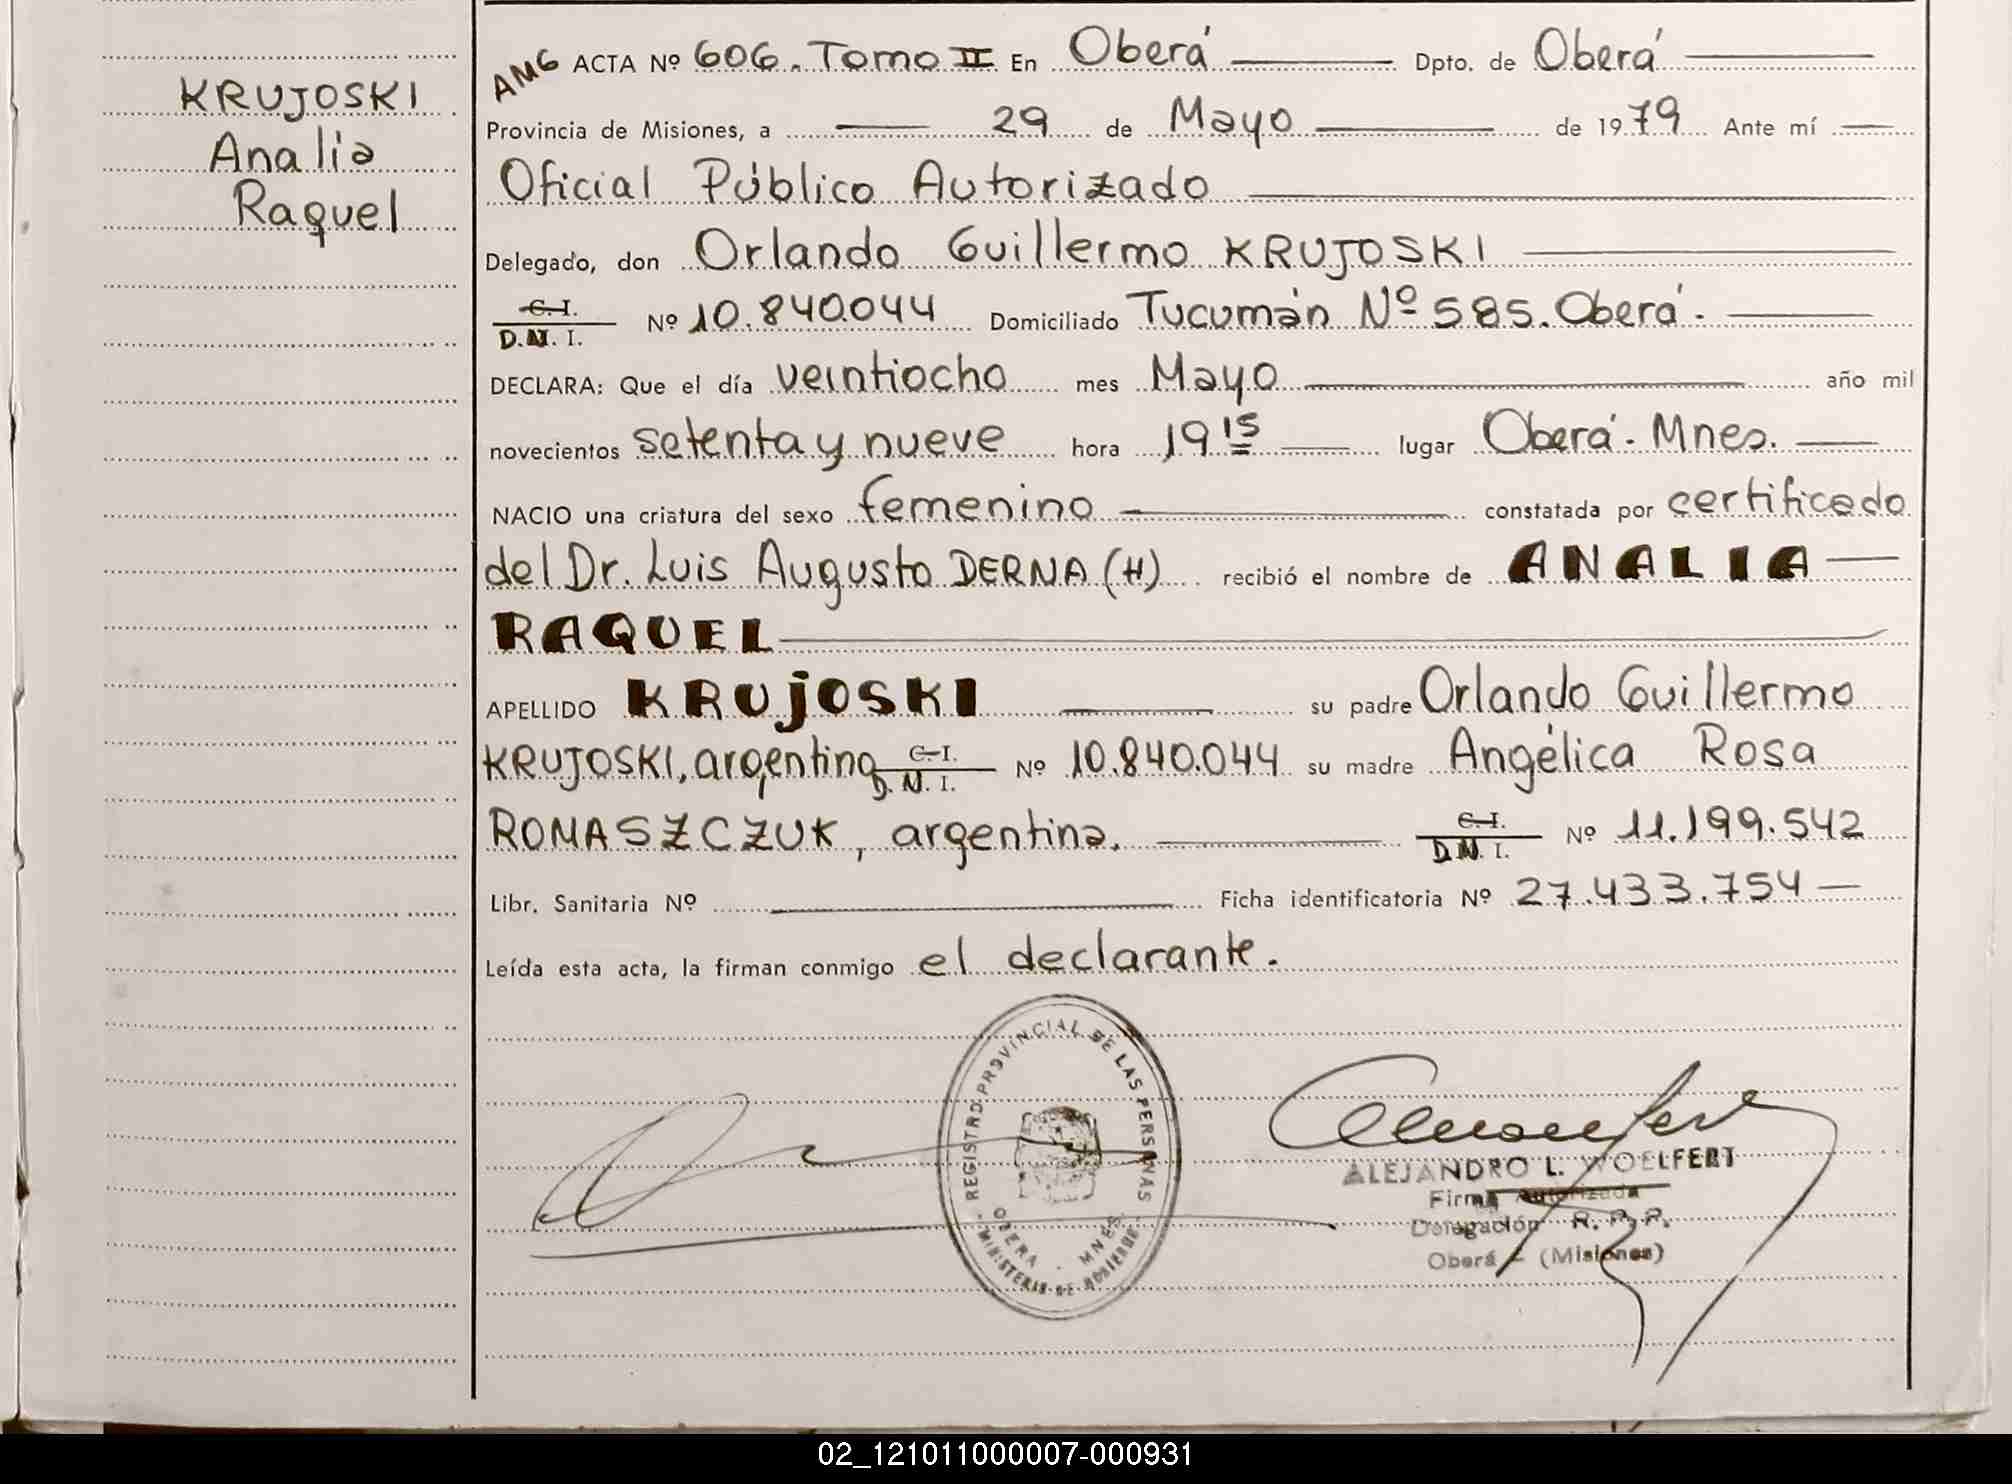 KRUJOSKI
Analia
Raquel
AMG ACTA Nº 606. Tomo II En Oberá Dpto. de Oberá
Provincia de Misiones, a 29 de Mayo de 1979 Ante mí
Oficial Público Autorizado
Delegado, don Orlando Guillermo KRUJOSKI
C. I.
D. N. I. Nº 10.840.044 Domiciliado Tucumán Nº 585. Oberá.
DECLARA: Que el día veintiocho mes Mayo año mil
novecientos setenta y nueve hora 19 15 lugar Oberá. Mnes.
NACIO una criatura del sexo femenino constatada por certificado
del Dr. Luis Augusto DERNA (H) recibió el nombre de ANALIA
RAQUEL
APELLIDO KRUJOSKI su padre Orlando Guillermo
KRUJOSKI, argentino C. I. D. N. I. Nº 10.840.044 su madre Angélica Rosa
ROMASZCZUK, argentina. C. I. D. N. I. Nº 11.199.542
Libr. Sanitaria Nº Ficha identificatoria Nº 27.433.754
Leída esta acta, la firman conmigo el declarante.
REGISTRO PROVINCIAL DE LAS PERSONAS
OBERA - MNES.
MINISTERIO DE GOBIERNO
ALEJANDRO L. WOELFERT
Firma Autorizada
Delegación R. P. P.
Oberá - (Misiones)
02_121011000007-000931